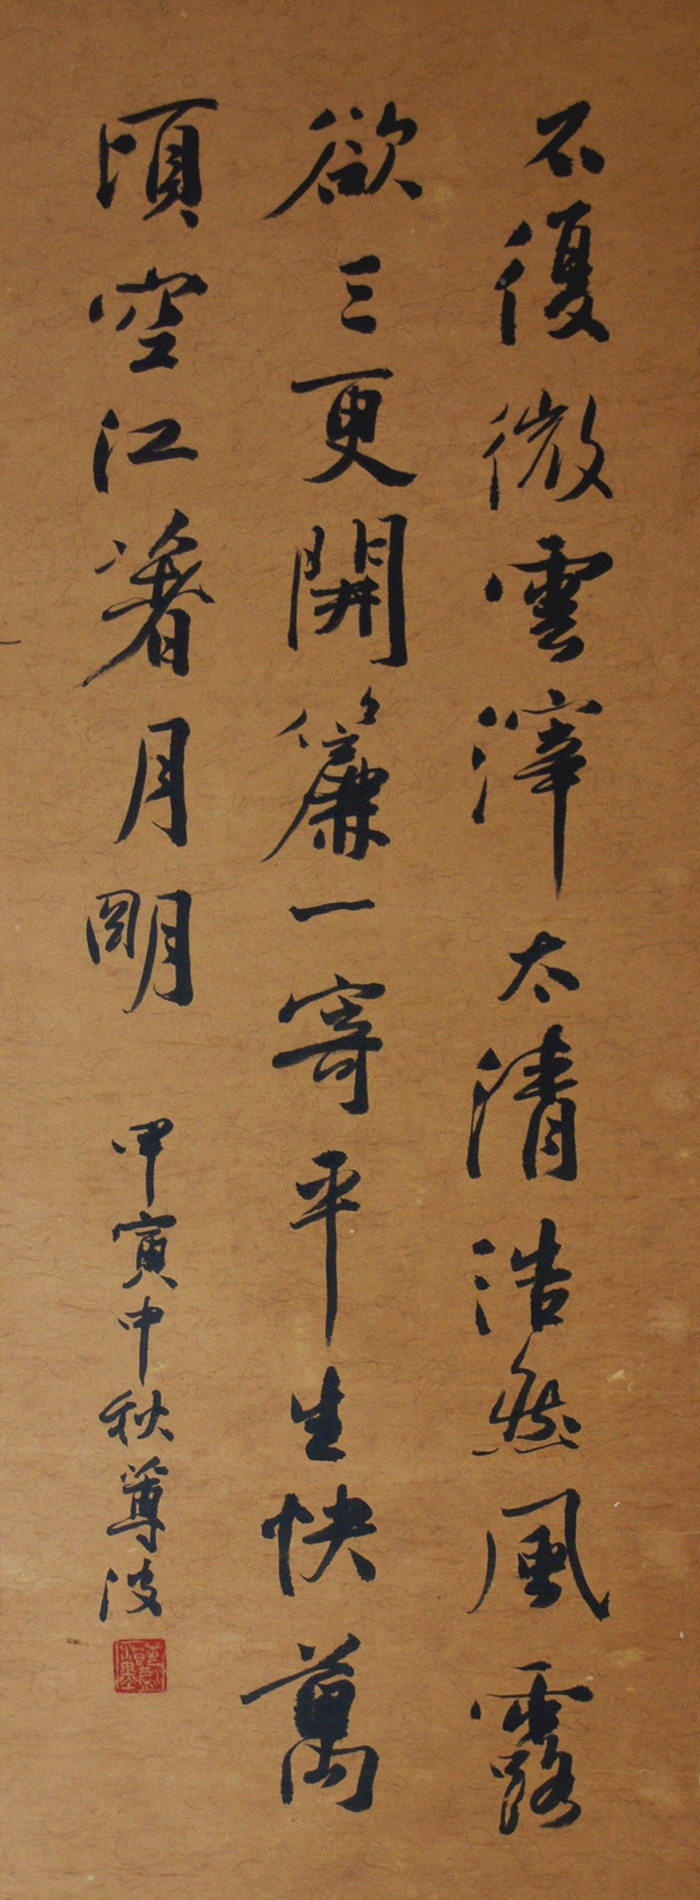 不復微雲滓太清浩然風露
欲三更開簾一寄平生快萬
頃空江著月明
甲寅中秋尊波